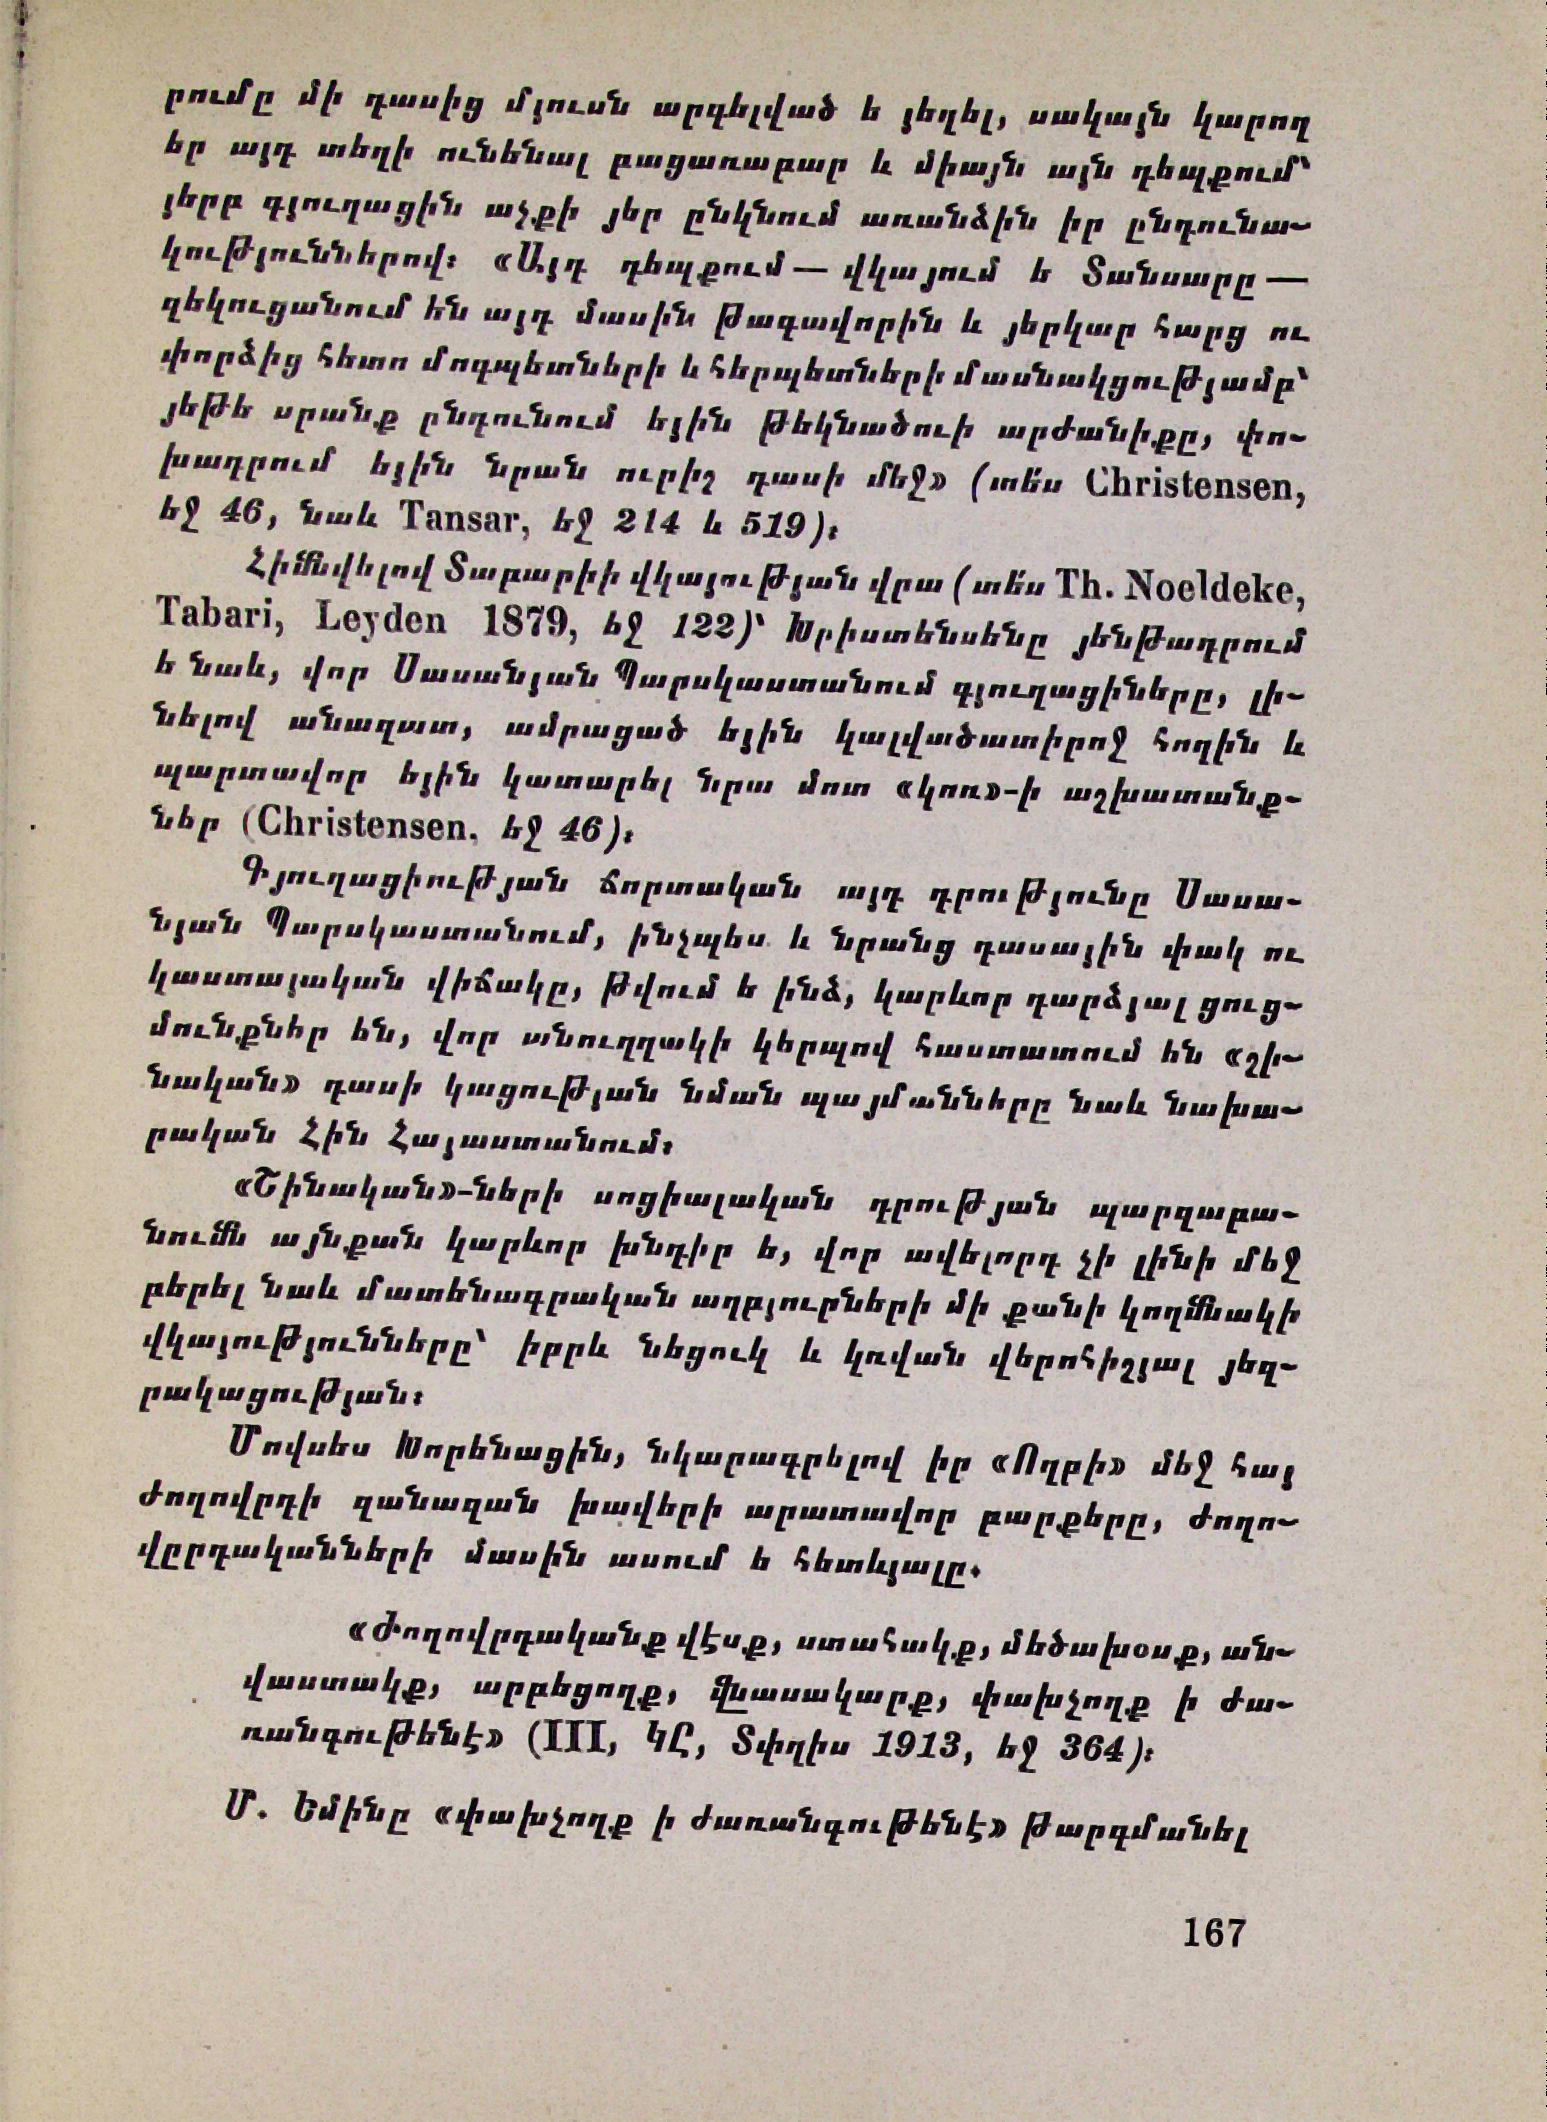 րումը մի դասից մյուսն արգելված ե յեղել, սակայն կարող
եր այդ տեղի ունենալ բացառաբար և միայն այն դեպքում՝
յերբ գյուղացին աչքի յեր ընկնում առանձին իր ընդունա-
կություններով։ «Այդ դեպքում — վկայում ե Տանսարը —
զեկուցանում են այդ մասին թագավորին և յերկար հարց ու
փորձից հետո մոգպետների և հերպետների մասնակցությամբ՝
յեթե սրանք ընդունում եյին թեկնածուի արժանիքը, փո-
խադրում եյին նրան ուրիշ դասի մեջ» (տե՛ս Christensen,
եջ 46, նաև Tansar, եջ 214 և 519)։
Հիմնվելով Տաբարիի վկայության վրա (տե՛ս Th. Noeldeke,
Tabari, Leyden 1879, եջ 122)՝ Խրիստենսենը յենթադրում
ե նաև, վոր Սասանյան Պարսկաստանում գյուղացիները, լի-
նելով անազատ, ամրացած եյին կալվածատիրոջ հողին և
պարտավոր եյին կատարել նրա մոտ «կոռ»-ի աշխատանք-
ներ (Christensen, եջ 46)։
Գյուղացիության ճորտական այդ դրությունը Սասա-
նյան Պարսկաստանում, ինչպես և նրանց դասային փակ ու
կաստայական վիճակը, թվում ե ինձ, կարևոր դարձյալ ցուց-
մունքներ են, վոր անուղղակի կերպով հաստատում են «շի-
նական» դասի կացության նման պայմանները նաև նախա-
րական Հին Հայաստանում։
«Շինական»-ների սոցիալական դրության պարզաբա-
նումն այնքան կարևոր խնդիր ե, վոր ավելորդ չի լինի մեջ
բերել նաև մատենագրական աղբյուրների մի քանի կողմնակի
վկայությունները՝ իբրև նեցուկ և կռվան վերոհիշյալ յեզ-
րակացության։
Մովսես Խորենացին, նկարագրելով իր «Ողբի» մեջ հայ
ժողովրդի զանազան խավերի արատավոր բարքերը, ժողո-
վըրդականների մասին ասում ե հետևյալը.
«Ժողովրդականք վէսք, ստահակք, մեծախօսք, ան-
վաստակք, արբեցողք, վնասակարք, փախչողք ի ժա-
ռանգութենէ» (III, ԿԸ, Տփղիս 1913, եջ 364)։
Մ. Եմինը «փախչողք ի ժառանգութենէ» թարգմանել
167